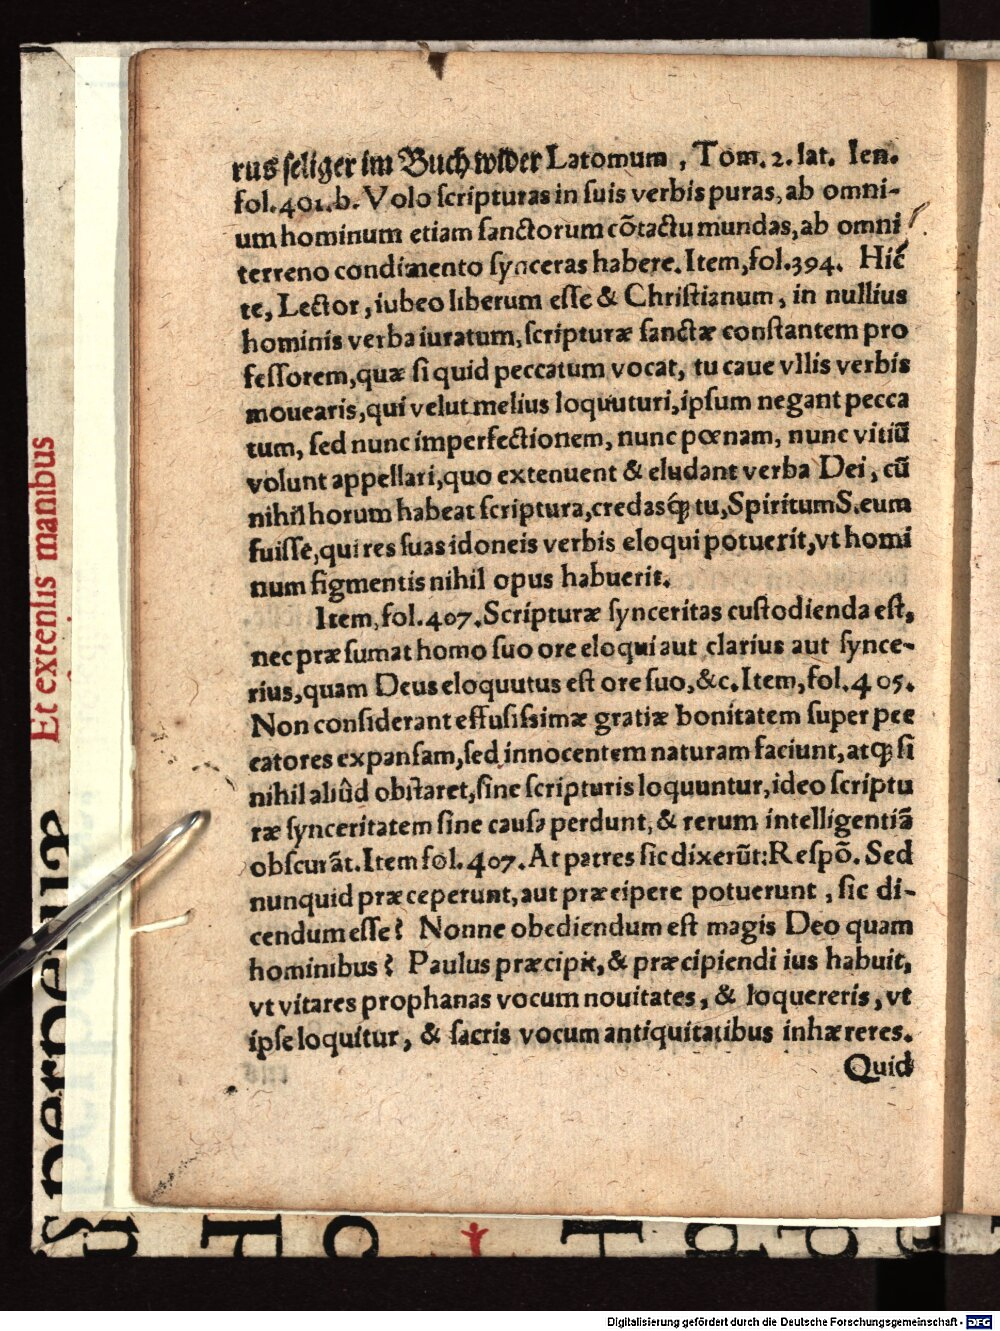 rus seliger im Buch wider Latomum, Tom. 2. lat. Ien.
fol. 401. b. Volo scripturas in suis verbis puras, ab omni-
um hominum etiam sanctorum cõtactu mundas, ab omni
terreno condimento synceras habere. Item, fol. 394. Hic
te, Lector, iubeo liberum esse & Christianum, in nullius
hominis verba iuratum, scripturæ sanctæ constantem pro
fessorem, quæ si quid peccatum vocat, tu caue vllis verbis
mouearis, qui velut melius loquuturi, ipsum negant pecca
tum, sed nunc imperfectionem, nunc pœnam, nunc vitiũ
volunt appellari, quo extenuent & eludant verba Dei, cũ
nihil horum habeat scriptura, credasq́; tu, Spiritum S. eum
fuisse, qui res suas idoneis verbis eloqui potuerit, vt homi
num figmentis nihil opus habuerit.
Item, fol. 407. Scripturæ synceritas custodienda est,
nec præsumat homo suo ore eloqui aut clarius aut synce-
rius, quam Deus eloquutus est ore suo, &c. Item, fol. 405.
Non considerant effusissimæ gratiæ bonitatem super pec
catores expansam, sed innocentem naturam faciunt, atq; si
nihil aliûd obstaret, sine scripturis loquuntur, ideo scriptu
ræ synceritatem sine causa perdunt, & rerum intelligentiã
obscurãt. Item fol. 407. At patres sic dixerũt: Respõ. Sed
nunquid præceperunt, aut præcipere potuerunt, sic di-
cendum esse? Nonne obediendum est magis Deo quam
hominibus? Paulus præcipit, & præcipiendi ius habuit,
vt vitares prophanas vocum nouitates, & loquereris, vt
ipse loquitur, & sacris vocum antiquitatibus inhæreres.
Quid
Et extensis manibus
perpetuæ
Digitalisierung gefördert durch die Deutsche Forschungsgemeinschaft - DFG